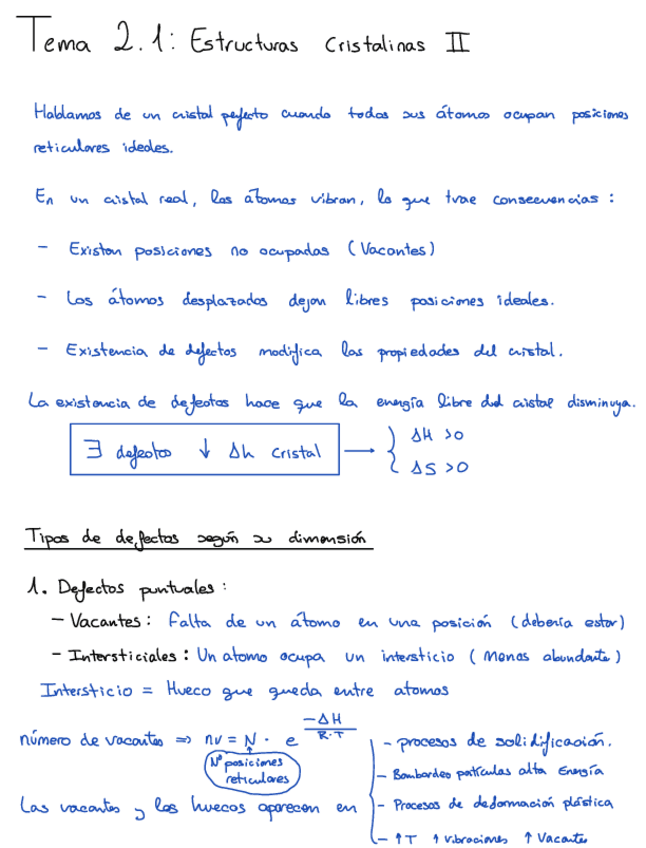 Tema 2.1: Estructuras Cristalinas II
Hablamos de un cristal perfecto cuando todos sus átomos ocupan posiciones
reticulares ideales.
En un cristal real, los átomos vibran, lo que trae consecuencias :
- Existen posiciones no ocupadas (Vacantes)
- Los átomos desplazados dejan libres posiciones ideales.
- Existencia de defectos modifica las propiedades del cristal.
La existencia de defectos hace que la energía libre del cristal disminuya.
∃ defectos ↓ Δh cristal → { ΔH >0
ΔS >0
Tipos de defectos según su dimensión
1. Defectos puntuales :
- Vacantes : Falta de un átomo en una posición (debería estar)
- Intersticiales : Un atomo ocupa un intersticio ( Menos abundante )
Intersticio = Hueco que queda entre atomos
número de vacantes ⇒ nv = N · e^(-ΔH / R·T)
Nº posiciones
reticulares
Las vacantes y los huecos aparecen en
- procesos de solidificación.
- Bombardeo partículas alta Energía
- Procesos de deformación plástica
- ↑T ↑ vibraciones ↑ Vacantes